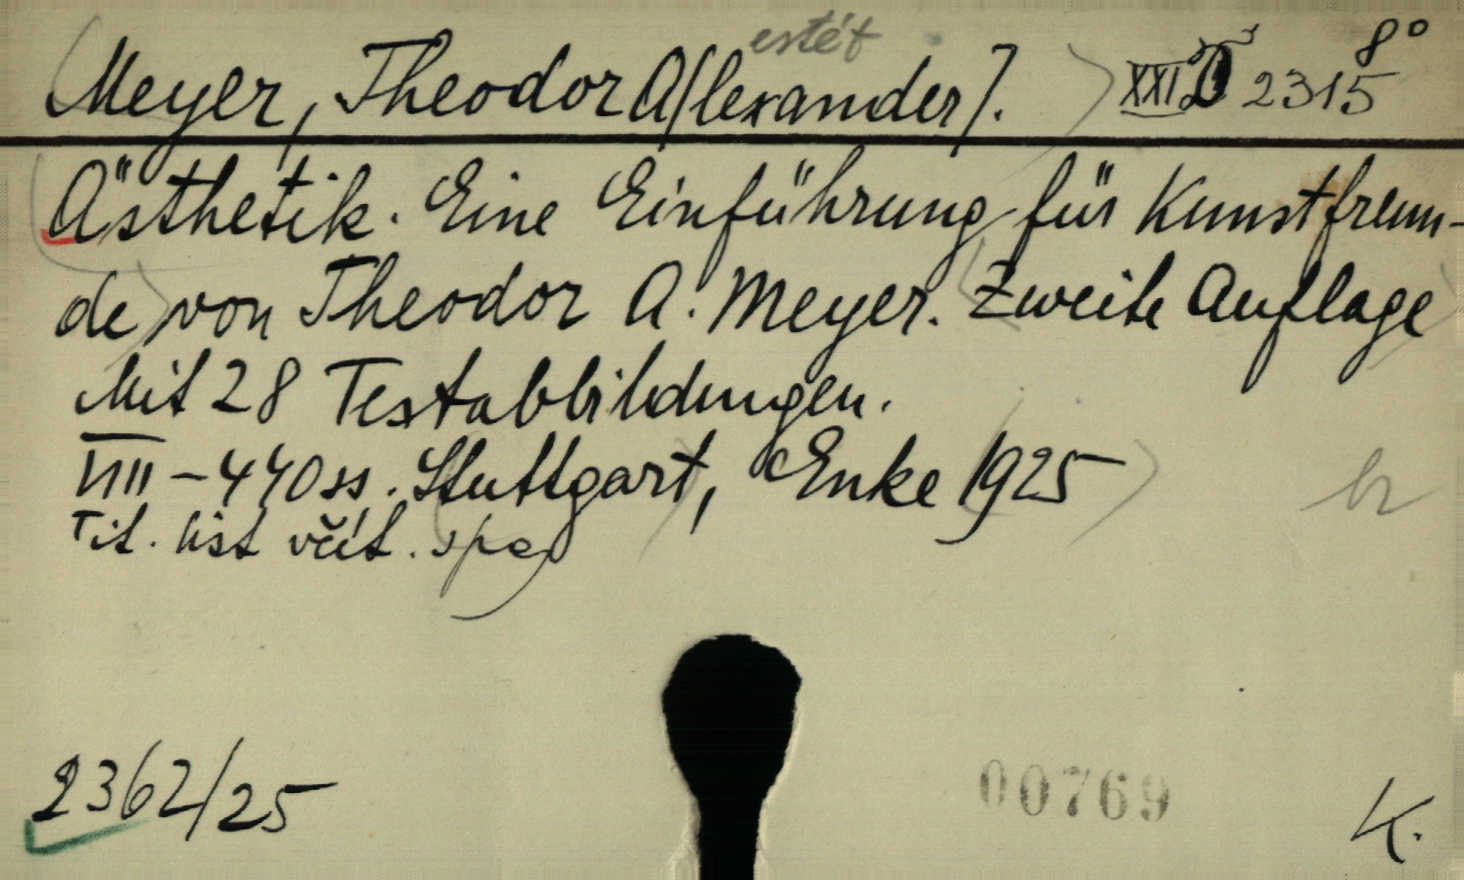 estét
Meyer, Theodor A[lexander]. XXI D 2315 8°
Ästhetik. Eine Einführung für Kunstfreun-
de von Theodor A. Meyer. Zweite Auflage
Mit 28 Textabbildungen.
VIII-440 ss. Stuttgart, Enke 1925
Tit. list včít.
2362/25
00769
K.